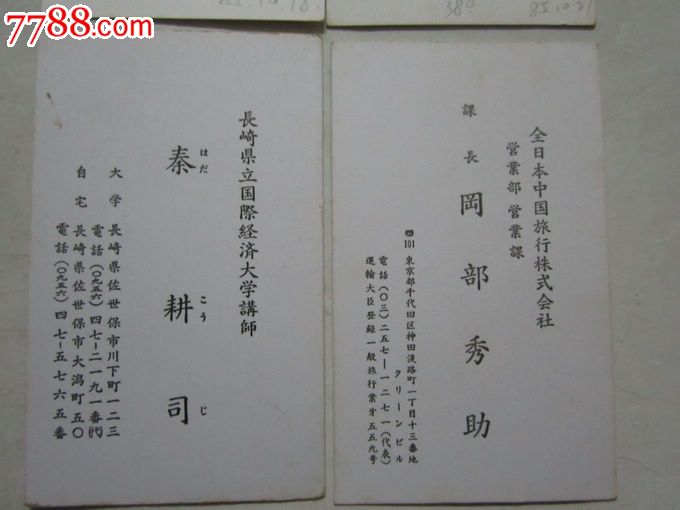 7788.com
85.10.18.
85.10.21
長崎県立国際経済大学講師
秦耕司
はだ こう じ
大学 長崎県佐世保市川下町一二三
電話(〇九五六)四七-二一九一番(代)
自宅 長崎県佐世保市大潟町五〇
電話(〇九五六)四七-五七六五番
全日本中国旅行株式会社
営業部 営業課
課長 岡部秀助
〒101 東京都千代田区神田淡路町一丁目十三番地
クリーンビル
電話(〇三)二五七-一二七一(代表)
運輸大臣登録一般旅行業第五五九号